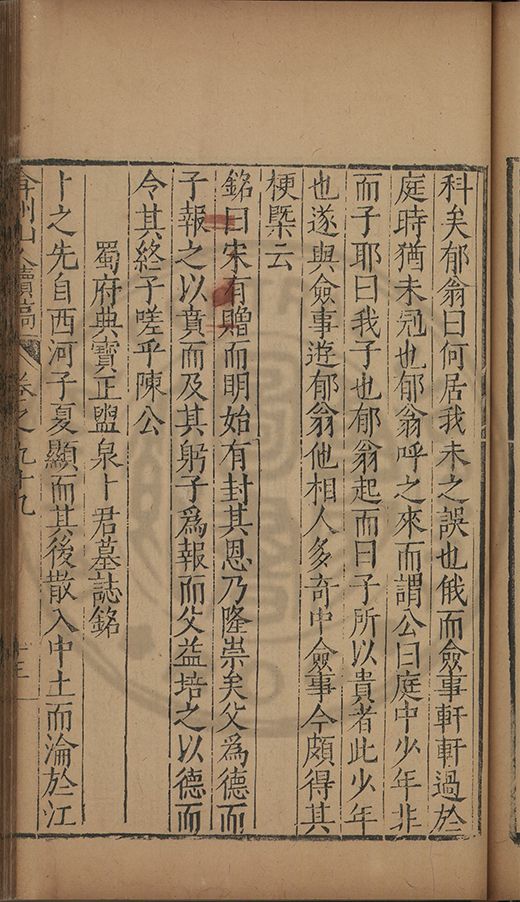 科矣郁翁曰何居我未之誤也俄而僉事軒軒過於
庭時猶未冠也郁翁呼之來而謂公曰庭中少年非
而子耶曰我子也郁翁起而曰子所以貴者此少年
也遂與僉事遊郁翁他相人多奇中僉事今頗得其
梗槩云
銘曰宋有贈而明始有封其恩乃隆崇矣父爲德而
子報之以賁而及其躬子爲報而父益培之以德而
令其終子嗟乎陳公
蜀府典寶正盟泉卜君墓誌銘
卜之先自西河子夏顯而其後散入中土而淪於江
弇州山人續稿 卷之九十九 十三